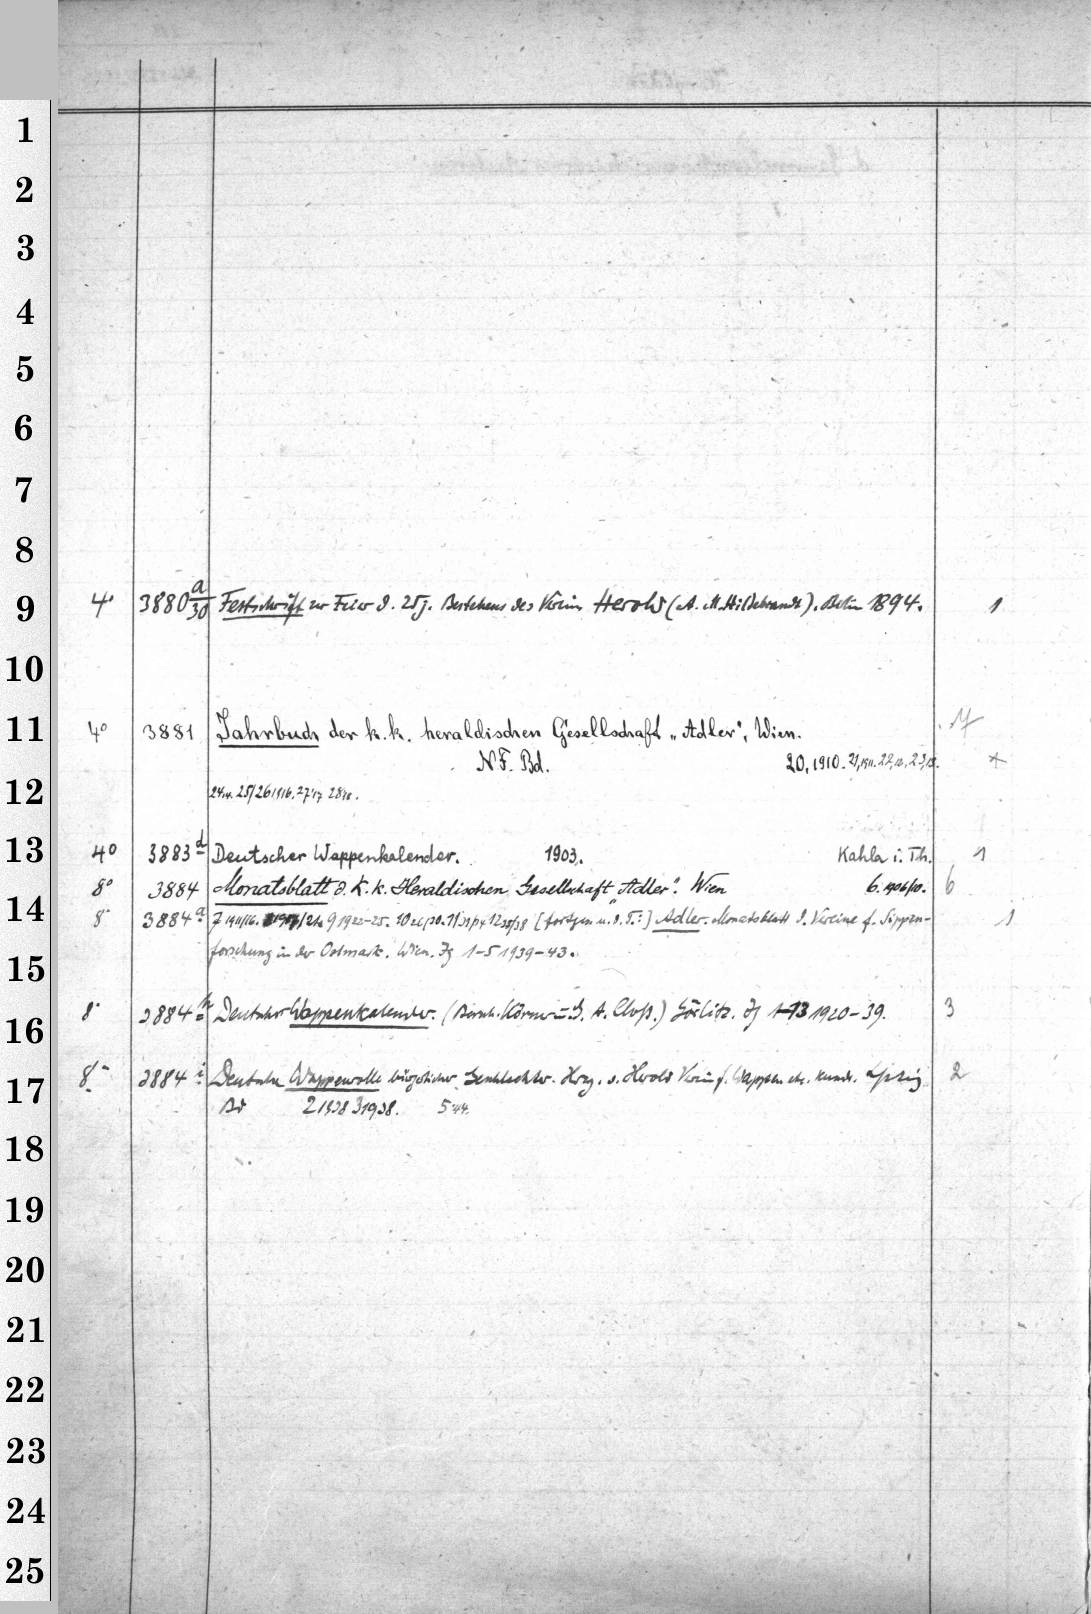 1
2
3
4
5
6
7
8
9 4° 3880 a/30 Festschrift zur Feier d. 25j. Bestehens des Vereins Herold (A. M. Hildebrandt). Berlin 1894. 1
10
11 4° 3881 Jahrbuch der k. k. heraldischen Gesellschaft „Adler“, Wien.
N. F. Bd. 20, 1910. 21, 1911. 22, 12. 23, 13.
12 24 14. 25/26 1916. 27 17 28 18.
13 4° 3883 d Deutscher Wappenkalender. 1903. Kahla i. Th. 1
8° 3884 Monatsblatt d. K. k. Heraldischen Gesellschaft „Adler“. Wien 6. 1906/10. 6
14 8° 3884 a 7 1911/16. 9 1922-25. 10 26/30. 11 31/34 12 35/38 [Fortges. u. d. T.:] Adler. Monatsblatt d. Vereine f. Sippen-
15 forschung in der Ostmark. Wien. Jg 1-5 1939-43. 1
16 8° 3884 h Deutscher Wappenkalender. (Bernh. Körner = G. A. Closs.) Görlitz. Jg 1-13 1920-39. 3
17 8° 3884 i Deutsche Wappenrolle bürgerlicher Geschlechter. Hrsg. v. Herold Verein f. Wappen etc. kunde. Leipzig 2
Bd 2 1938 3 1938. 5 44.
18
19
20
21
22
23
24
25